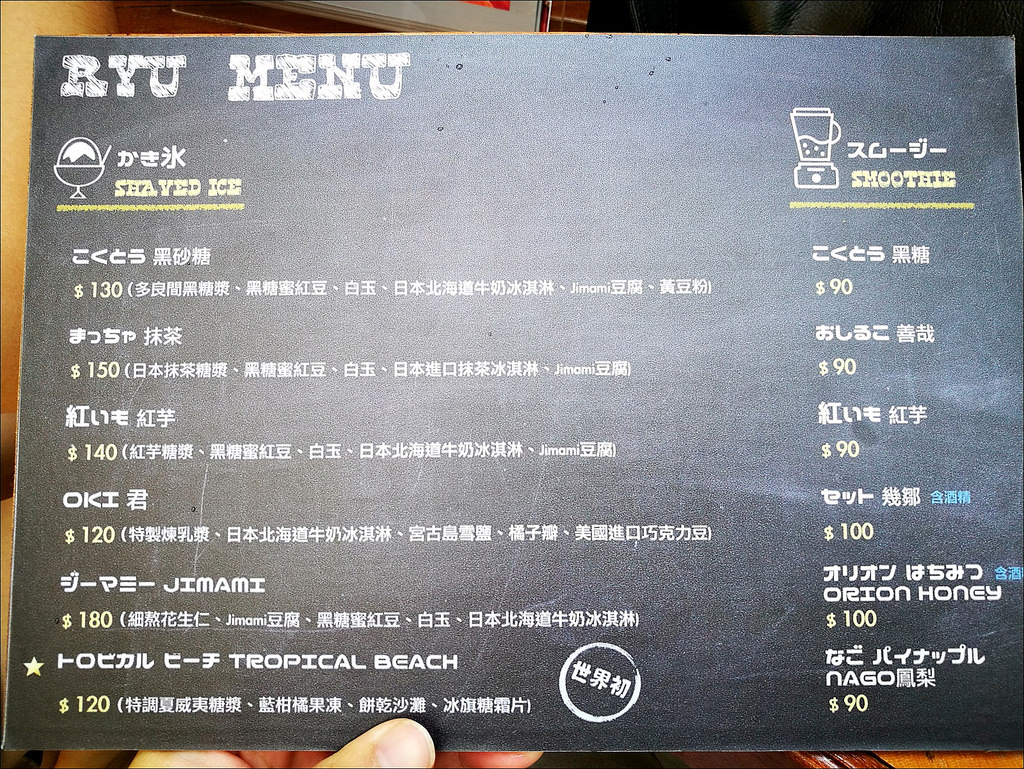 RYU MENU
かき氷
SHAVED ICE
こくとう 黑砂糖
$ 130 (多良間黑糖漿、黑糖蜜紅豆、白玉、日本北海道牛奶冰淇淋、Jimami豆腐、黃豆粉)
まっちゃ 抹茶
$ 150 (日本抹茶糖漿、黑糖蜜紅豆、白玉、日本進口抹茶冰淇淋、Jimami豆腐)
紅いも 紅芋
$ 140 (紅芋糖漿、黑糖蜜紅豆、白玉、日本北海道牛奶冰淇淋、Jimami豆腐)
OKI 君
$ 120 (特製煉乳漿、日本北海道牛奶冰淇淋、宮古島雪鹽、橘子瓣、美國進口巧克力豆)
ジーマミー JIMAMI
$ 180 (細熬花生仁、Jimami豆腐、黑糖蜜紅豆、白玉、日本北海道牛奶冰淇淋)
トロピカル ビーチ TROPICAL BEACH
$ 120 (特調夏威夷糖漿、藍柑橘果凍、餅乾沙灘、冰旗糖霜片)
世界初
スムージー
SMOOTHIE
こくとう 黑糖
$ 90
おしるこ 善哉
$ 90
紅いも 紅芋
$ 90
セット 幾鄒 含酒精
$ 100
オリオン はちみつ 含酒
ORION HONEY
$ 100
なご パイナップル
NAGO鳳梨
$ 90